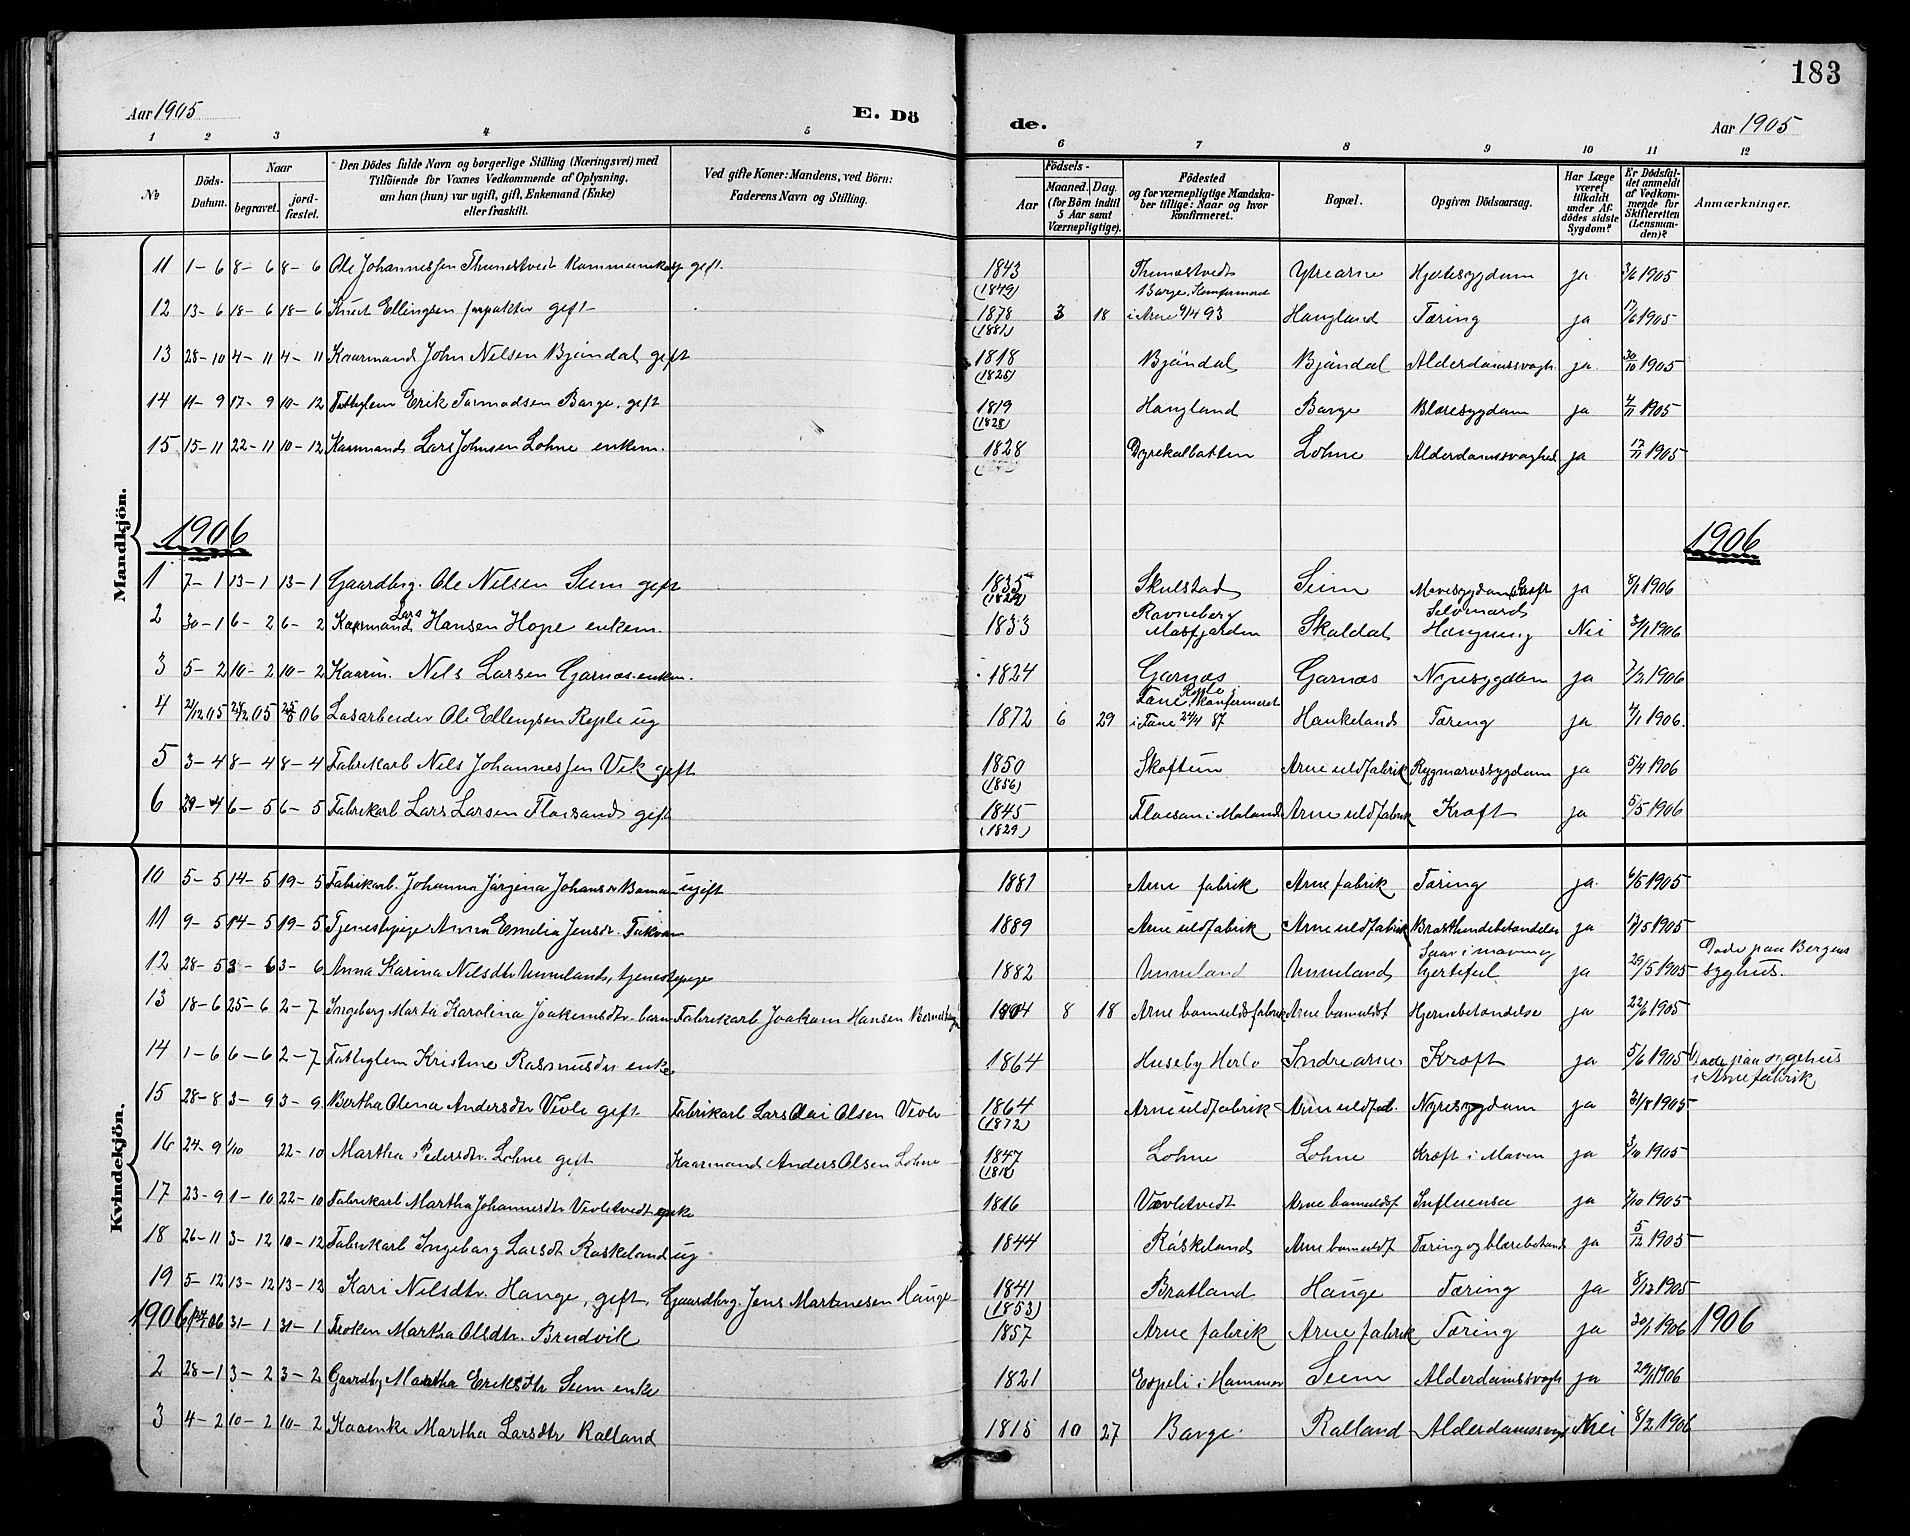 183
Aar 1905 E. Dö de. Aar 1905
1 2 3 4 5 6 7 8 9 10 11 12
№
Döds-Datum.
Naar
begravet.
jord-fæstet.
Den Dödes fulde Navn og borgerlige Stilling (Næringsvei) med
Tilföiende for Voxnes Vedkommende af Oplysning,
om han (hun) var ugift, gift, Enkemand (Enke)
eller fraskilt.
Ved gifte Koner: Mandens, ved Börn:
Faderens Navn og Stilling.
Födsels-
Aar
Maaned. Dag.
(for Börn indtil
5 Aar samt
Værnepligtige).
Födested
og for værnepligtige Mandska-
ber tillige: Naar og hvor
konfirmeret.
Bopæl.
Opgiven Dödsaarsag.
Har Læge
været
tilkaldt
under Af-
dödes sidste
Sygdom?
Er Dödsfal-
det anmeldt
af Vedkom-
mende for
Skifteretten
(Lensman-
den)?
Anmærkninger.
Mandkjön.
11 1-6 8-6 8-6 Ole Johannessen Thunestvedt gift. 1843 (1849) Thunestvedt Ytrearne Hjertesygdom ja 3/6 1905
12 13-6 18-6 18-6 Knut Ellingsen forpakter gift 1878 (1881) 3 18 Borge, Konfirmeret i Arne 9/4 93 Haugland Tæring ja 17/6 1905
13 28-10 4-11 4-11 Kaarmand John Nilsen Bjöndal gift 1818 (1825) Bjöndal Bjöndal Alderdomssvagh. ja 30/10 1905
14 11-9 17-9 10-12 Fattiglem Erik Tormodsen Borge, gift 1819 (1828) Haugland Borge Blæresygdom ja 4/11 1905
15 15-11 22-11 10-12 Kaarmand Lars Johnsen Lohne enkem. 1828 Dyrekolbotten Lohne Alderdomssvaghed ja 17/11 1905
1906 1906
1 7-1 13-1 13-1 Gaardbrg. Ole Nilsen Seim gift 1835 (1829) Skulstad Seim Mavesygdom, Kræft ja 8/1 1906
2 30-1 6-2 6-2 Kaarmand Lars Hansen Hope enkem. 1833 Ravneberg Masfjorden Skaldal Selvmord Hængning Nei 3/1 1906
3 5-2 10-2 10-2 Kaarm. Nils Larsen Garnæs enkem. 1824 Garnæs Garnæs Nyresygdom ja 7/2 1906
4 21/12 05 28/12 05 25/3 06 Løsarbeider Ole Ellingsen Rople ug 1872 6 29 Rople i Fane, Konfirmeret i Fane 24/4 87 Haukeland Tæring ja 4/1 1906.
5 3-4 8-4 8-4 Fabrikarb Nils Johannessen Vik gift 1850 (1856) Skoftun Arne uldfabrik Rygmarvssygdom ja 5/4 1906
6 29-4 6-5 6-5 Fabrikarb Lars Larsen Floisand gift 1845 (1829) Floesan i Moland Arne uldfabrik Kræft ja 5/5 1906
Kvindekjön.
10 5-5 14-5 19-5 Fabrikarb. Johanna Jörgina Johansdr Boman ugift 1881 Arne fabrik Arne fabrik Tæring ja. 6/5 1905
11 9-5 14-5 19-5 Tjenestepige Anna Emilia Jensdr. Takvam 1889 Arne uldfabrik Arne uldfabrik Brysthindebetændelse ja 12/5 1905
12 28-5 3-6 3-6 Anna Karina Nilsdtr Unneland, tjenestepige 1882 Unneland Unneland Saar i maven og hjertefeil ja 29/5 1905 Døde paa Bergens syghus.
13 18-6 25-6 2-7 Ingeborg Marta Karolina Joakimsdtr barn Fabrikarb Joakim Hansen 1904 8 18 Arne bomuldsfabrik Arne bomuldsf Hjernebetændelse ja 22/6 1905
14 1-6 6-6 2-7 Fattiglem Kristine Rasmusdtr enke 1864 Huseby Herlø Indrearne Kræft ja 5/6 1905 Døde paa sygehus i Arne fabrik
15 28-8 3-9 3-9 Bertha Olena Andersdtr Vevle gift Fabrikarb Lars Olai Olsen Vevle 1864 (1872) Arne uldfabrik Arne uldfab. Nyresygdom ja 31/8 1905
16 24-9 1/10 22-10 Martha Pedersdtr. Lohne gift Kaarmand Anders Olsen Lohne 1847 (1818) Lohne Lohne Kræft i Maven ja 3/10 1905
17 23-9 1-10 22-10 Fabrikarb Martha Johannesdtr Vevletvedt enke 1816 Vævletvedt Arne bomuldsf Influensa ja 7/10 1905
18 26-11 3-12 10-12 Fabrikarb Ingeborg Larsdt Raskeland ug 1844 Röskeland Arne bomuldsf Tæring og blærebetænd ja 5/12 1905
19 5-12 13-12 13-12 Kari Nilsdtr. Hauge, gift, Gaardbrg. Jens Martinesen Hauge 1841 (1853) Bratland Hauge Tæring ja 8/12 1905
1906 31-1 31-1 Frøken Martha Olsdtr. Brudvik 1857 Arne fabrik Arne fabrik Tæring ja 30/1 1906 1906
2 28-1 3-2 3-2 Gaardbg Martha Eriksdtr Seim enke 1821 Espeli i Hammer Seim Alderdomssvagh ja 29/1 1906
3 4-2 10-2 10-2 Kaarenke Martha Larsdtr Ralland 1815 10 27 Borge. Ralland Alderdomssvagh Nei 8/2 1906